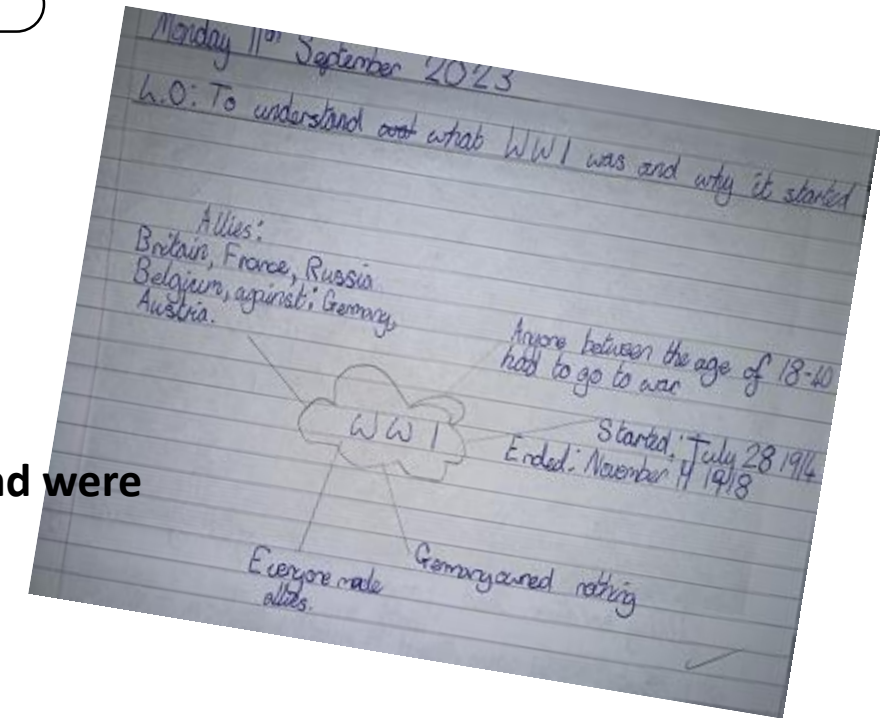 Monday 11th September 2023
L.O: To understand what WW1 was and why it started
Allies:
Britain, France, Russia
Belgium, against: Germany,
Austria.
Anyone between the age of 18-40
had to go to war
WW1
Started: July 28 1914
Ended: November 11 1918
nd were
Everyone made
allies.
Germany owned nothing